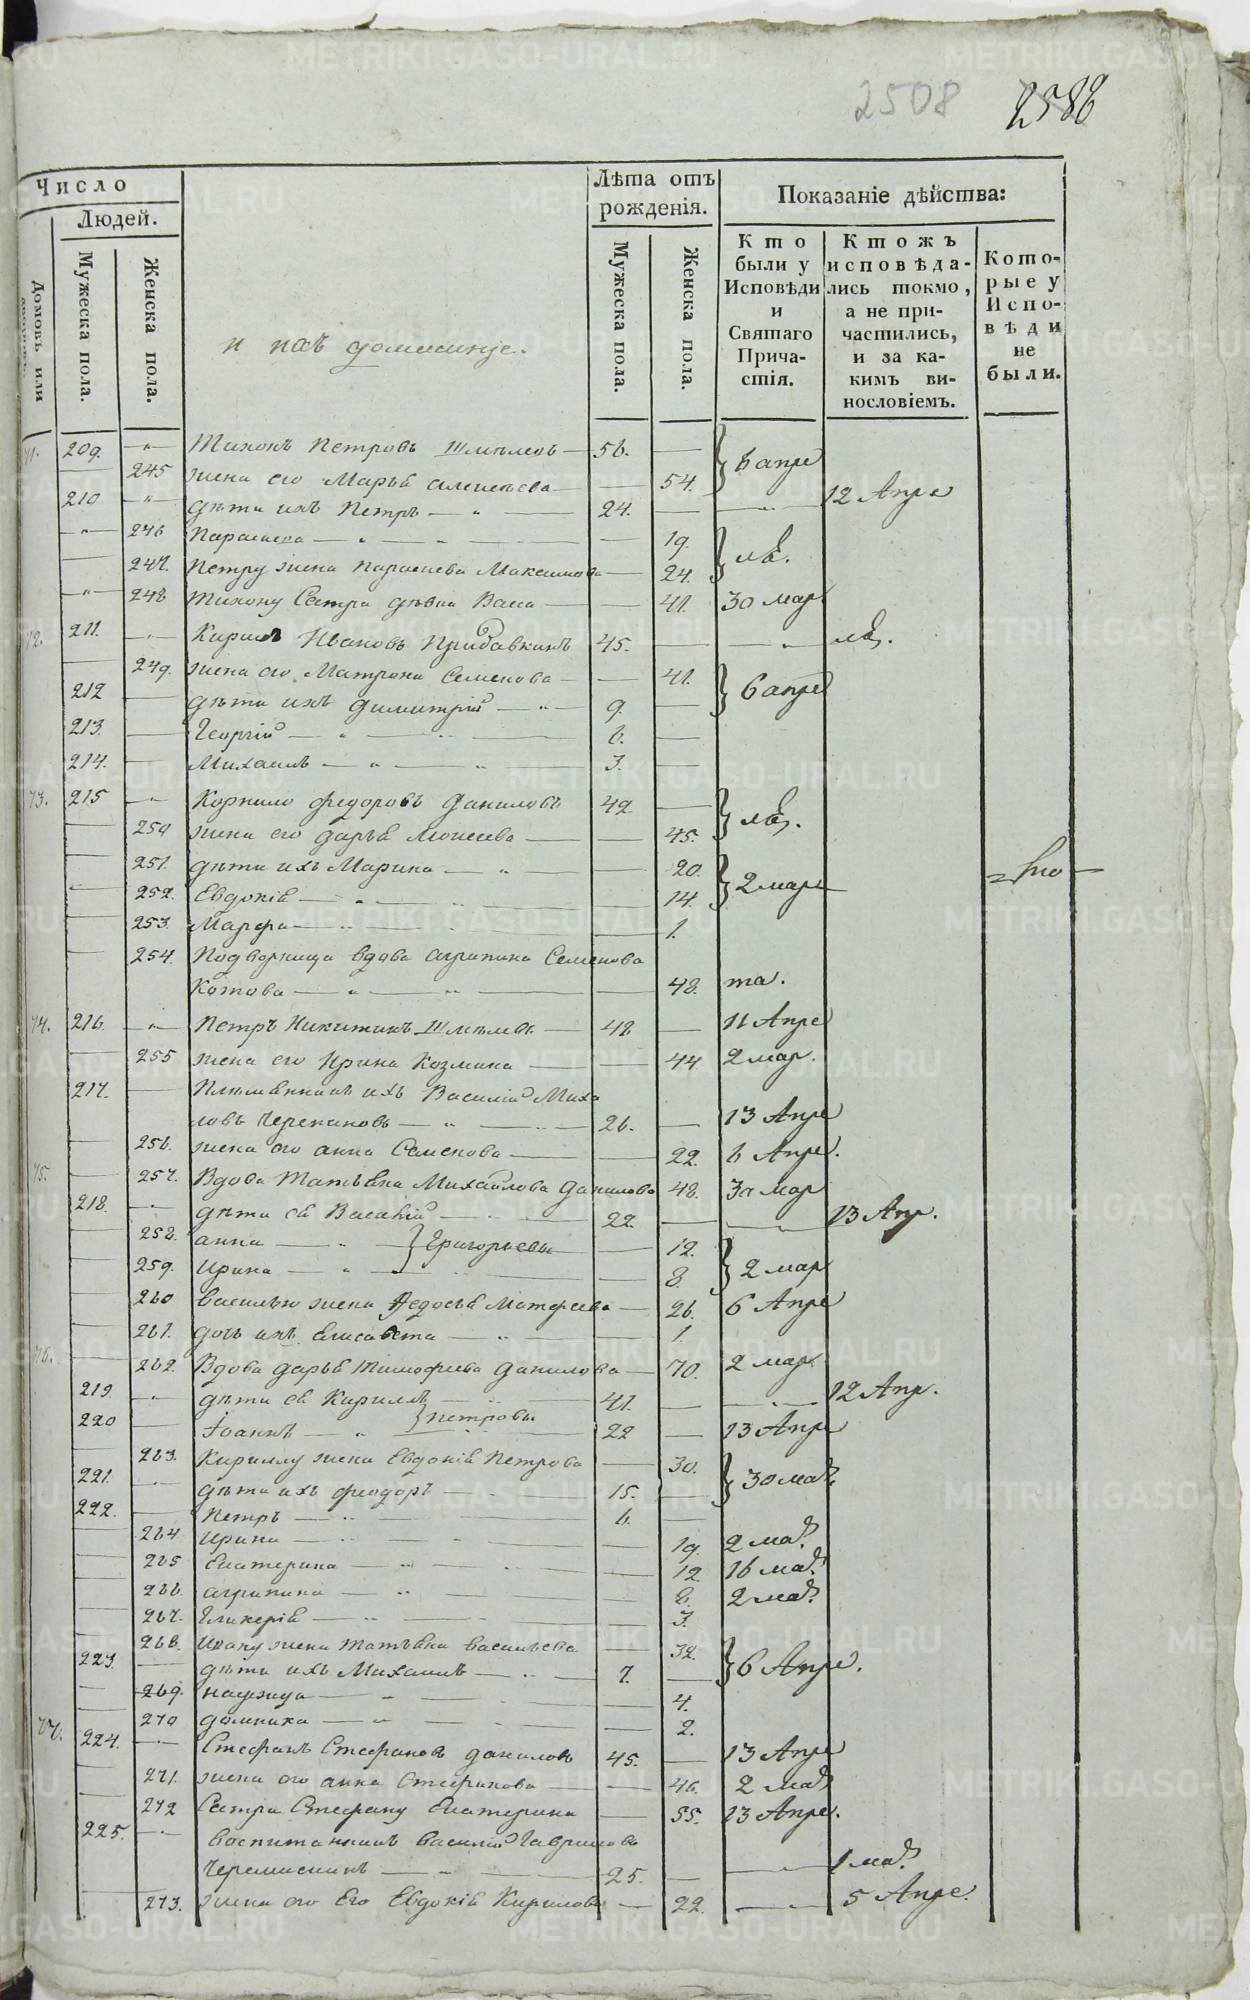 2508 2588
Число
Людей.
Домовъ или
Мужеска пола.
Женска пола.
и ихъ домашніе.
Лѣта отъ рожденія.
Мужеска пола.
Женска пола.
Показаніе дѣйства:
Кто были у Исповѣди и Святаго Причастія.
Ктожъ исповѣдались токмо, а не причастились, и за какимъ винословіемъ.
Которые у Исповѣди не были.
209. Тихонъ Петровъ 56. 6 апре
245 жена его Марья 54.
210 дѣти ихъ Петръ 24. 12 Апре
246 19.
247. Петру жена Максимова 24.
248 Тихону Сестра дѣвка Васа 41. 30 мар
72. 211. Кирилъ Ивановъ Прибавкинъ 45.
249. жена его Матрона Семенова 41. 6 апре
212 дѣти ихъ Димитрій 9.
213. Георгій 6.
214. Михаилъ 3.
73. 215 Корнило Федоровъ Даниловъ 42
250 жена его Дарья Моисеева 45.
251. дѣти ихъ Марина 20. 2 мар
252. Евдокія 14.
253. Марфа 1.
254. Подворница вдова Агрипина Семенова
Котова 48. та.
74. 216. Петръ Никитинъ 48. 11 Апре
255 жена его Ирина Козмина 44. 2 мар.
217. Племянникъ ихъ Василій Миха
ловъ Черепановъ 26. 13 Апре
256. жена его Анна Семенова 22. 6 Апре.
75. 257. Вдова Татьяна Михайлова Данилова 48. 30 мар
218. дѣти ея Василій 22. 13 Апр.
258. Анна Григорьевы 12.
259. Ирина 8. 2 мар
260 Василью жена Федосья Матфеева 26. 6 Апре
261. дочь ихъ Елисавета 1.
76. 262. Вдова Дарья Тимофеева Данилова 70. 2 мар
219. дѣти ея Кирилъ 41. 12 Апр.
220 Іоаннъ Петровы 22 13 Апре
263. Кирилу жена Евдокія Петрова 30.
221. дѣти ихъ Феодоръ 15. 30 мар.
222. Петръ 6.
264 Ирина 19. 2 мар.
265 Екатерина 12 16 мар.
266. Агрипина 6. 2 мар.
267. Гликерія 3.
268. Ивану жена Татьяна Васильева 32.
223. дѣти ихъ Михаилъ 7. 6 Апре.
269. Надежда 4.
270 Домника 2.
77. 224. Стефанъ Стефановъ Даниловъ 45. 13 Апре
271. жена его Анна Стефанова 46. 2 мар
272 Сестра Стефану Екатерина 55. 13 Апре.
225. Воспитанникъ Василій Гавриловъ
Черемискинъ 25. 1 мар.
273. жена его Его Евдокія Кирилова 22. 5 Апре.